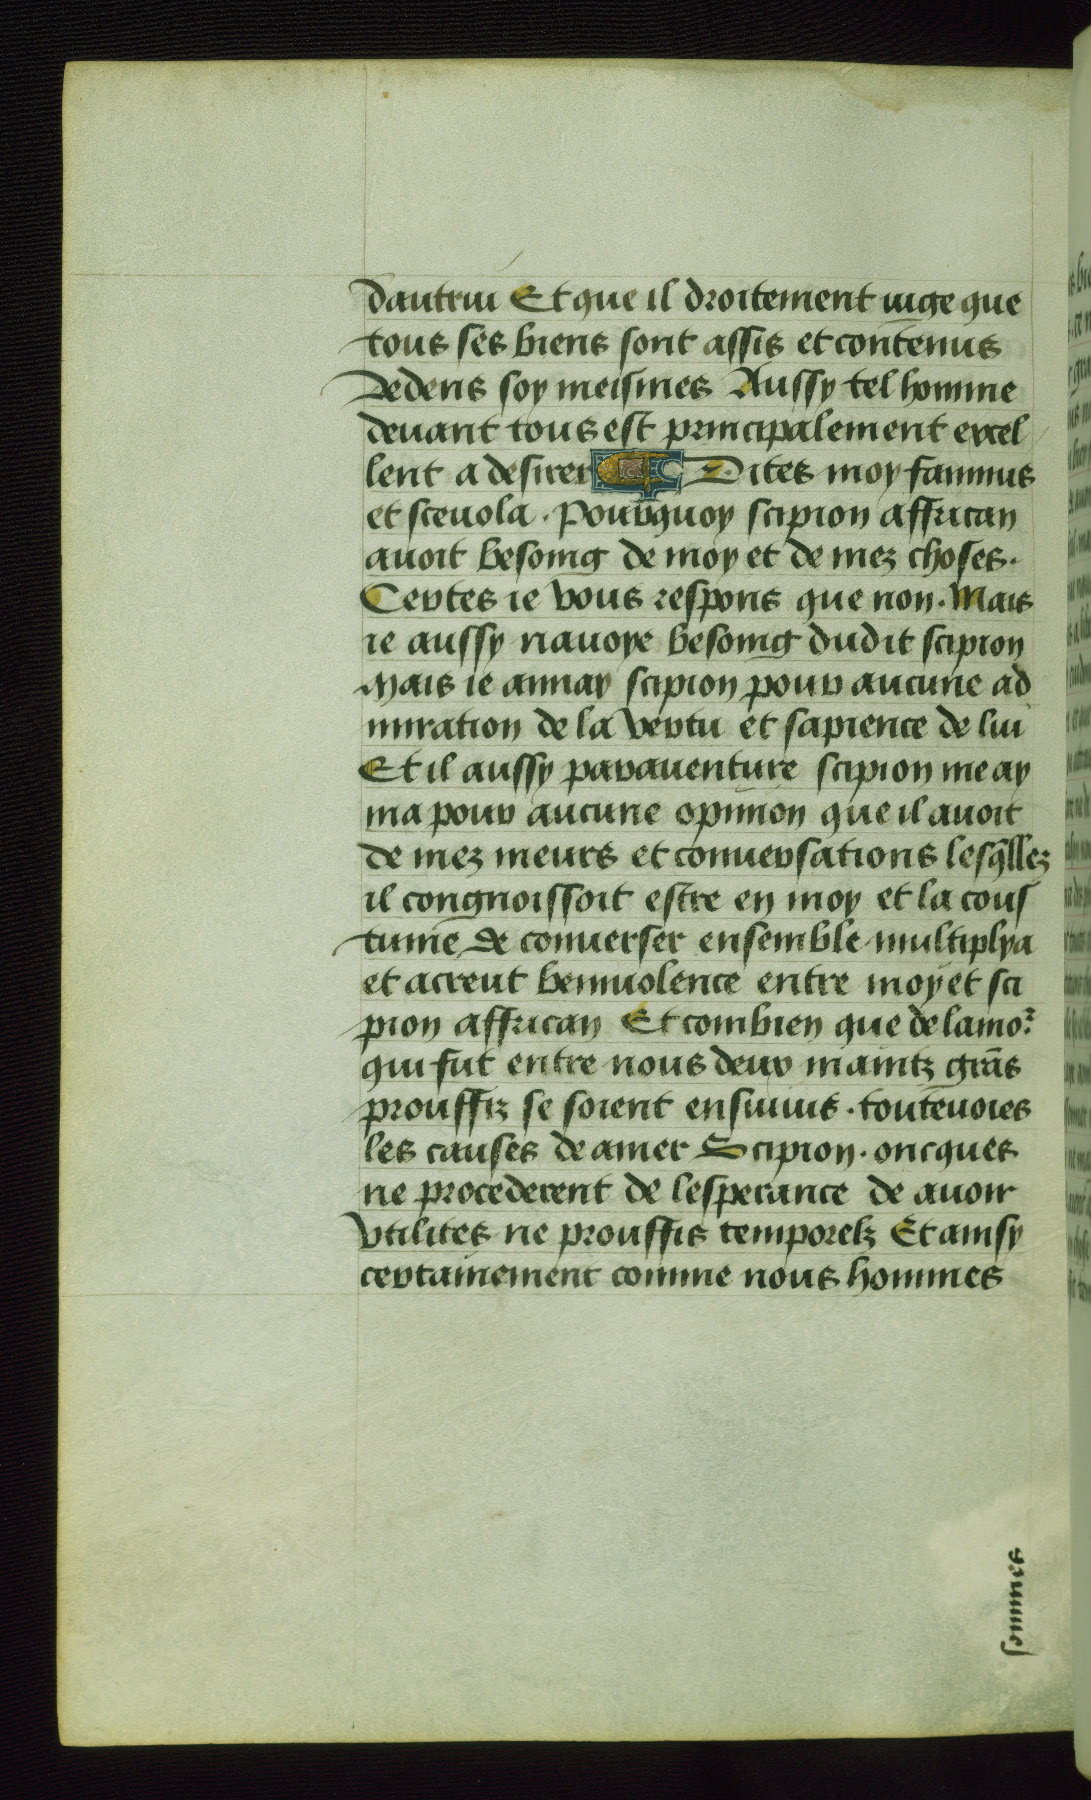 dautrui Et que il droitement iuge que
tous ses biens sont assis et contenus
dedens soy meismes Aussy tel homme
deuant tous est principalement excel
lent a desirer Dites moy fannius
et sceuola. Pourquoy scipion affrican
auoit besoing de moy et de mez choses.
Certes ie vous respons que non. Mais
ie aussy nauoye besoing dudit scipion
Mais ie aimay scipion pour aucune ad
miration de la vertu et sapience de lui
Et il aussy parauenture scipion me ay
ma pour aucune opinion que il auoit
de mez meurs et conuersations lesq̃llez
il congnoissoit estre en moy et la cous
tume de conuerser ensemble multiplya
et acreut beniuolence entre moy et sci
pion affrican Et combien que de lamoꝛ̃
qui fut entre nous deux maintz grãs
prouffiz se soient ensuiuis. touteuoies
les causes de amer Scipion. oncques
ne procederent de lesperance de auoir
vtilites ne prouffis temporelz Et ainsy
certainement comme nous hommes
sommes